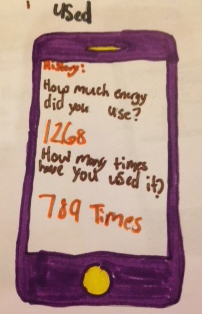 used
History:
How much energy
did you use?
1268
How many times
have you used it?
789 Times